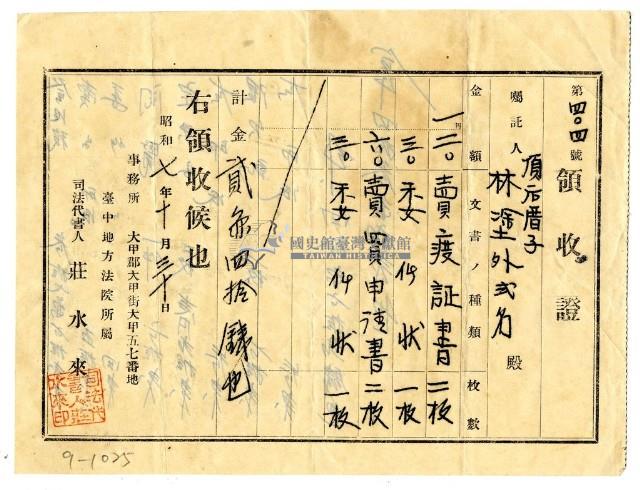 第四〇四號
領收證
頂店厝子
囑託人 林塗外弍名 殿
金額 文書ノ種類 枚數
円
一二〇 賣渡証書 二枚
三〇 委任状 一枚
六〇 賣買申請書 二枚
三〇 委任状 一枚
計金 貳圓四拾錢也
右領收候也
昭和七年十月三十日
事務所 大甲郡大甲街大甲五七番地
臺中地方法院所屬
司法代書人 莊水來
司法代書人莊水來印
國史館臺灣文獻館
TAIWAN HISTORICA
9-1025